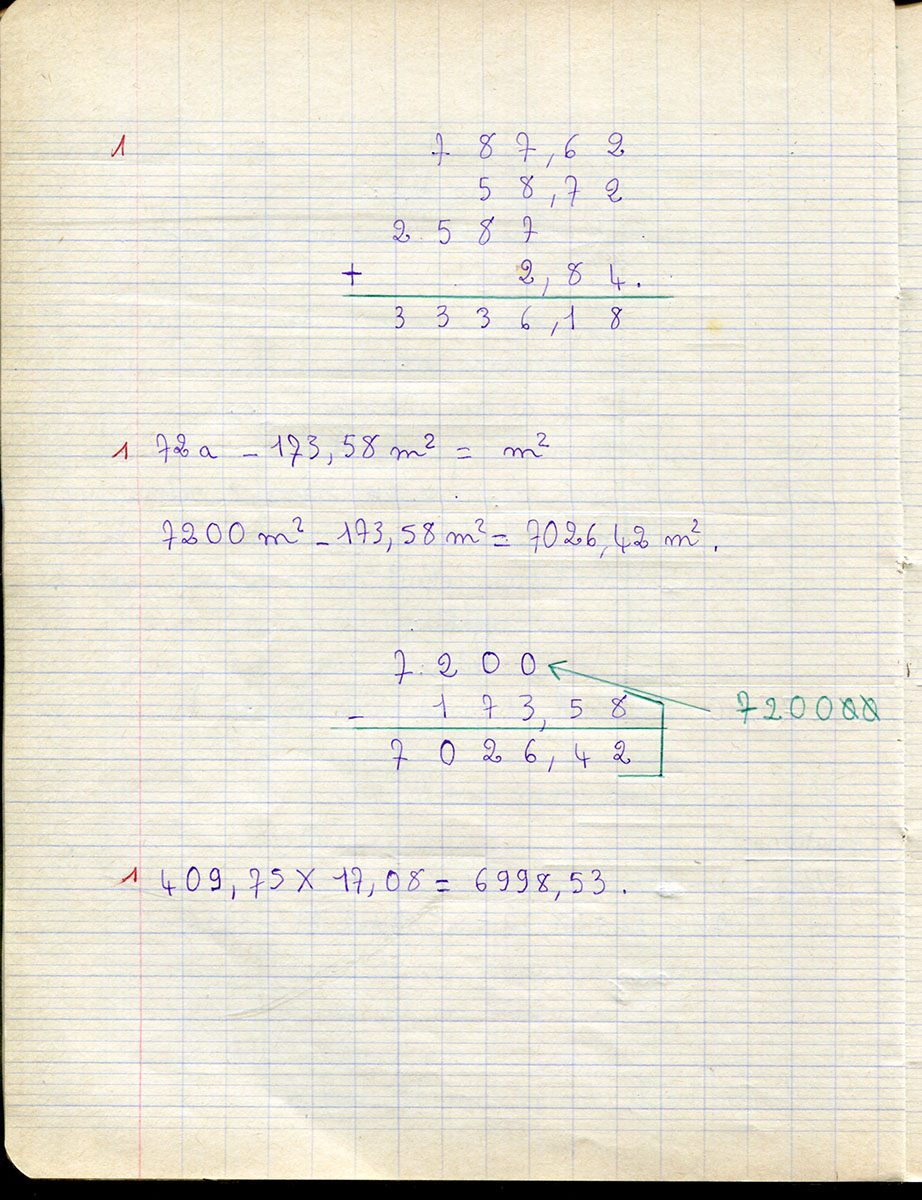 1 787,62
58,72
2587
+ 2,84.
3336,18
1 72a - 173,58 m² = m²
7200 m² - 173,58 m² = 7026,42 m².
7200
- 173,58 720000
7026,42
1 409,75 X 17,08 = 6998,53.